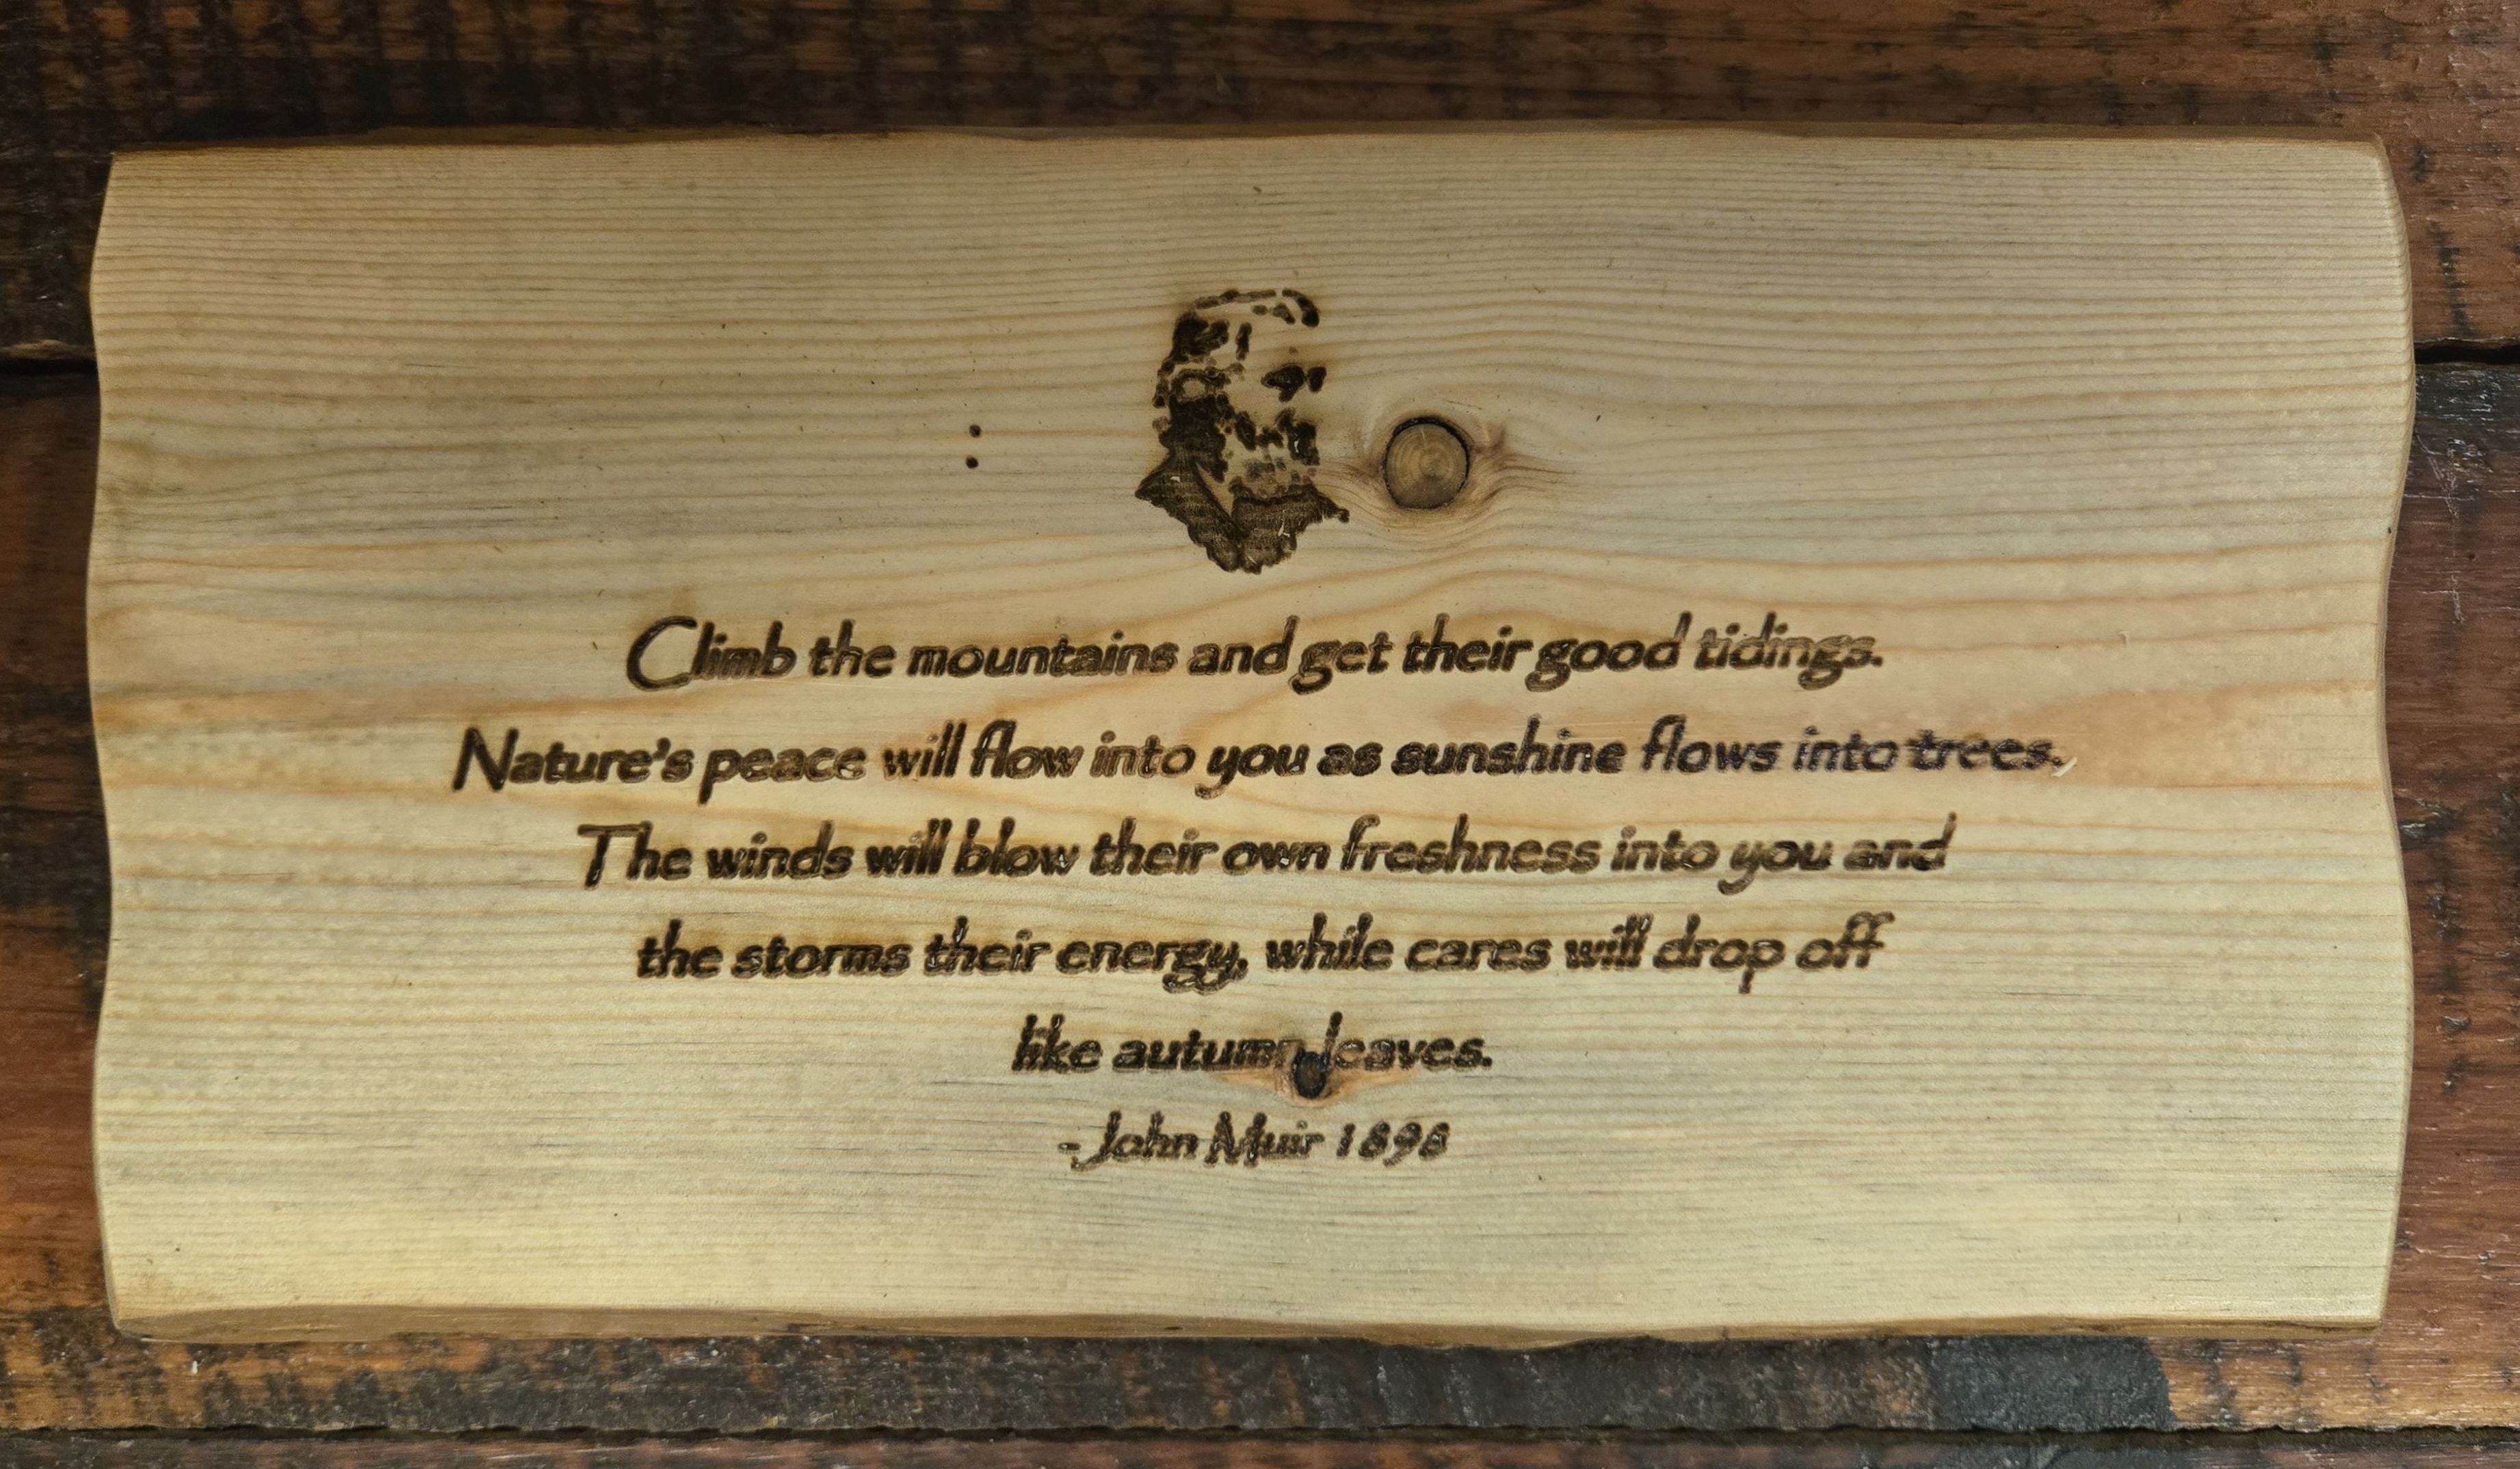 Climb the mountains and get their good tidings.
Nature's peace will flow into you as sunshine flows into trees.
The winds will blow their own freshness into you and
the storms their energy, while cares will drop off
like autumn leaves.
- John Muir 1898